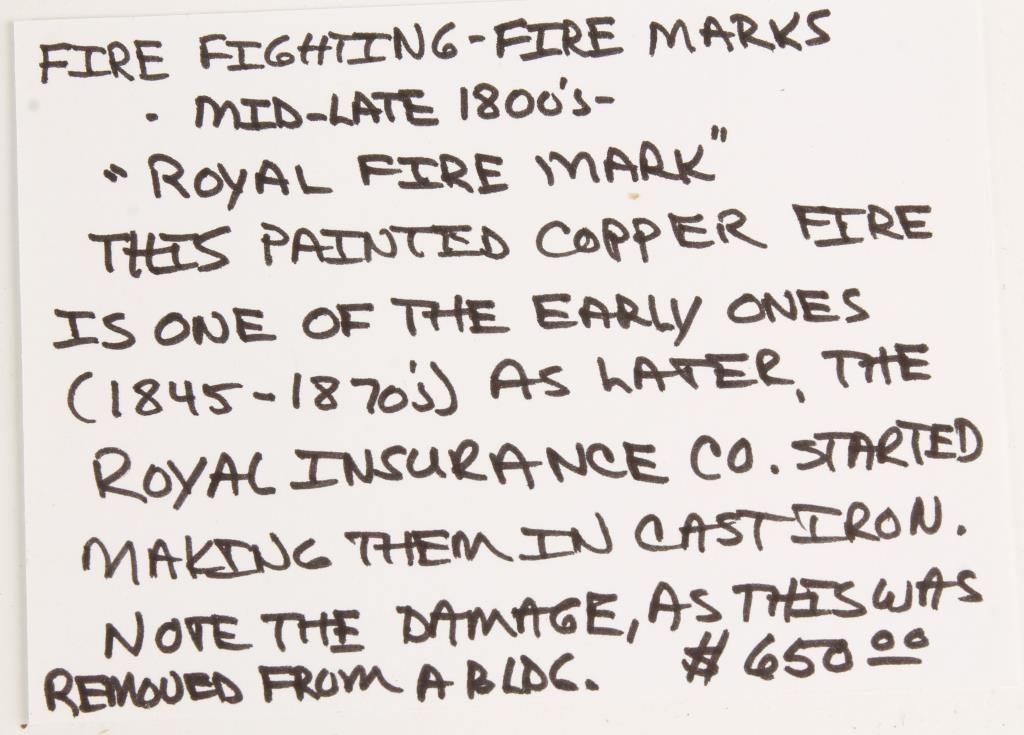 FIRE FIGHTING-FIRE MARKS
· MID-LATE 1800's-
"ROYAL FIRE MARK"
THIS PAINTED COPPER FIRE
IS ONE OF THE EARLY ONES
(1845-1870's) AS LATER, THE
ROYAL INSURANCE CO. STARTED
MAKING THEM IN CAST IRON.
NOTE THE DAMAGE, AS THIS WAS
REMOVED FROM A BLDG. $650 00